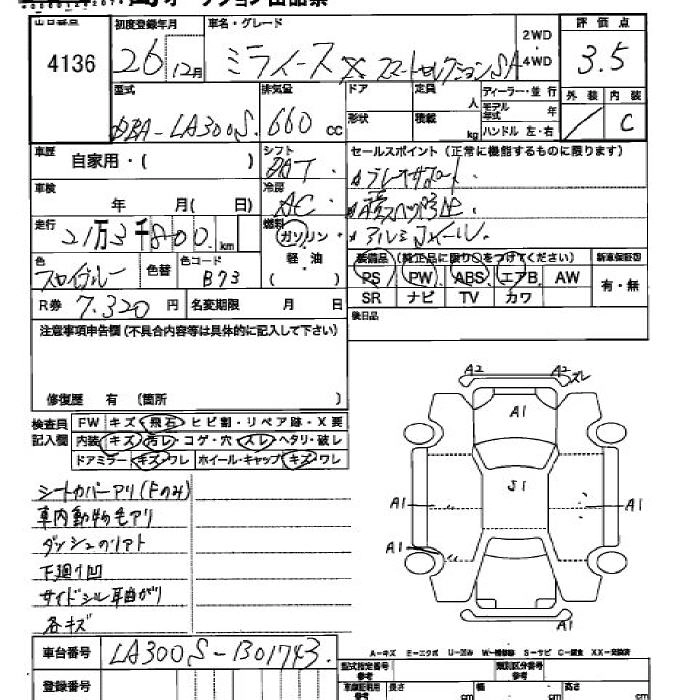 出品番号
4136
初度登録年月
26 12月
車名・グレード
ミライース X スマートセレクションSA
2WD
4WD
評価点
3.5
外装 内装
C
型式
DBA-LA300S
排気量
660 cc
ドア
形状
定員 人
積載 kg
ディーラー・並行
モデル年式 年
ハンドル 左・右
車歴 自家用・( )
シフト
AT
冷房
AC
セールスポイント (正常に機能するものに限ります)
アルミホイール
車検 年 月( 日)
走行
21万3千800 km
燃料
ガソリン
軽・油
( )
色
色替
色コード
B73
装備品 (純正品に限り○をつけてください)
新車保証書
有・無
PS PW ABS エアB AW
SR ナビ TV カワ
R券 7,320 円
名変期限 月 日
後日品
注意事項申告欄 (不具合内容等は具体的に記入して下さい)
修復歴 有 (箇所 )
検査員記入欄
FW キズ・飛石・ヒビ割・リペア跡・X要
内装 キズ・汚レ・コゲ・穴・スレ・ヘタリ・破レ
ドアミラー キズ・ワレ ホイール・キャップ キズ・ワレ
シートカバーアリ(Fのみ)
車内動物毛アリ
下廻り凹
サイドシル耳曲がり
各キズ
A2 A2 ズレ
A1
S1
A1 A1
A1
A1
車台番号 LA300S-B01743
登録番号
A-キズ E-エクボ U-凹み W-補修跡 S-サビ C-腐食 XX-交換済
型式指定番号 参考
類別区分番号 参考
長さ cm
幅 cm
高さ cm